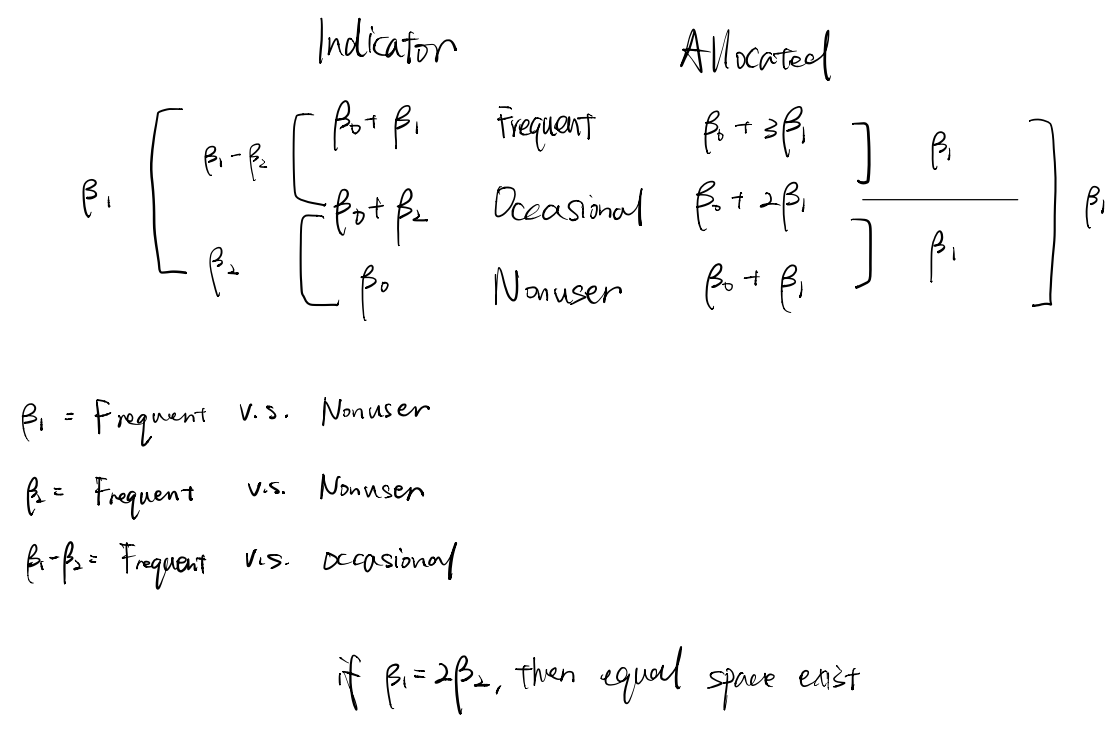 Indicator Allocated
β₀ + β₁ Frequent β₀ + 3β₁
β₁ - β₂ β₁
β₁ β₀ + β₂ Occasional β₀ + 2β₁ β₁
β₂ β₁
β₀ Nonuser β₀ + β₁
β₁ = Frequent v.s. Nonuser
β₂ = Frequent v.s. Nonuser
β₁-β₂ = Frequent v.s. occasional
if β₁ = 2β₂, then equal space exist